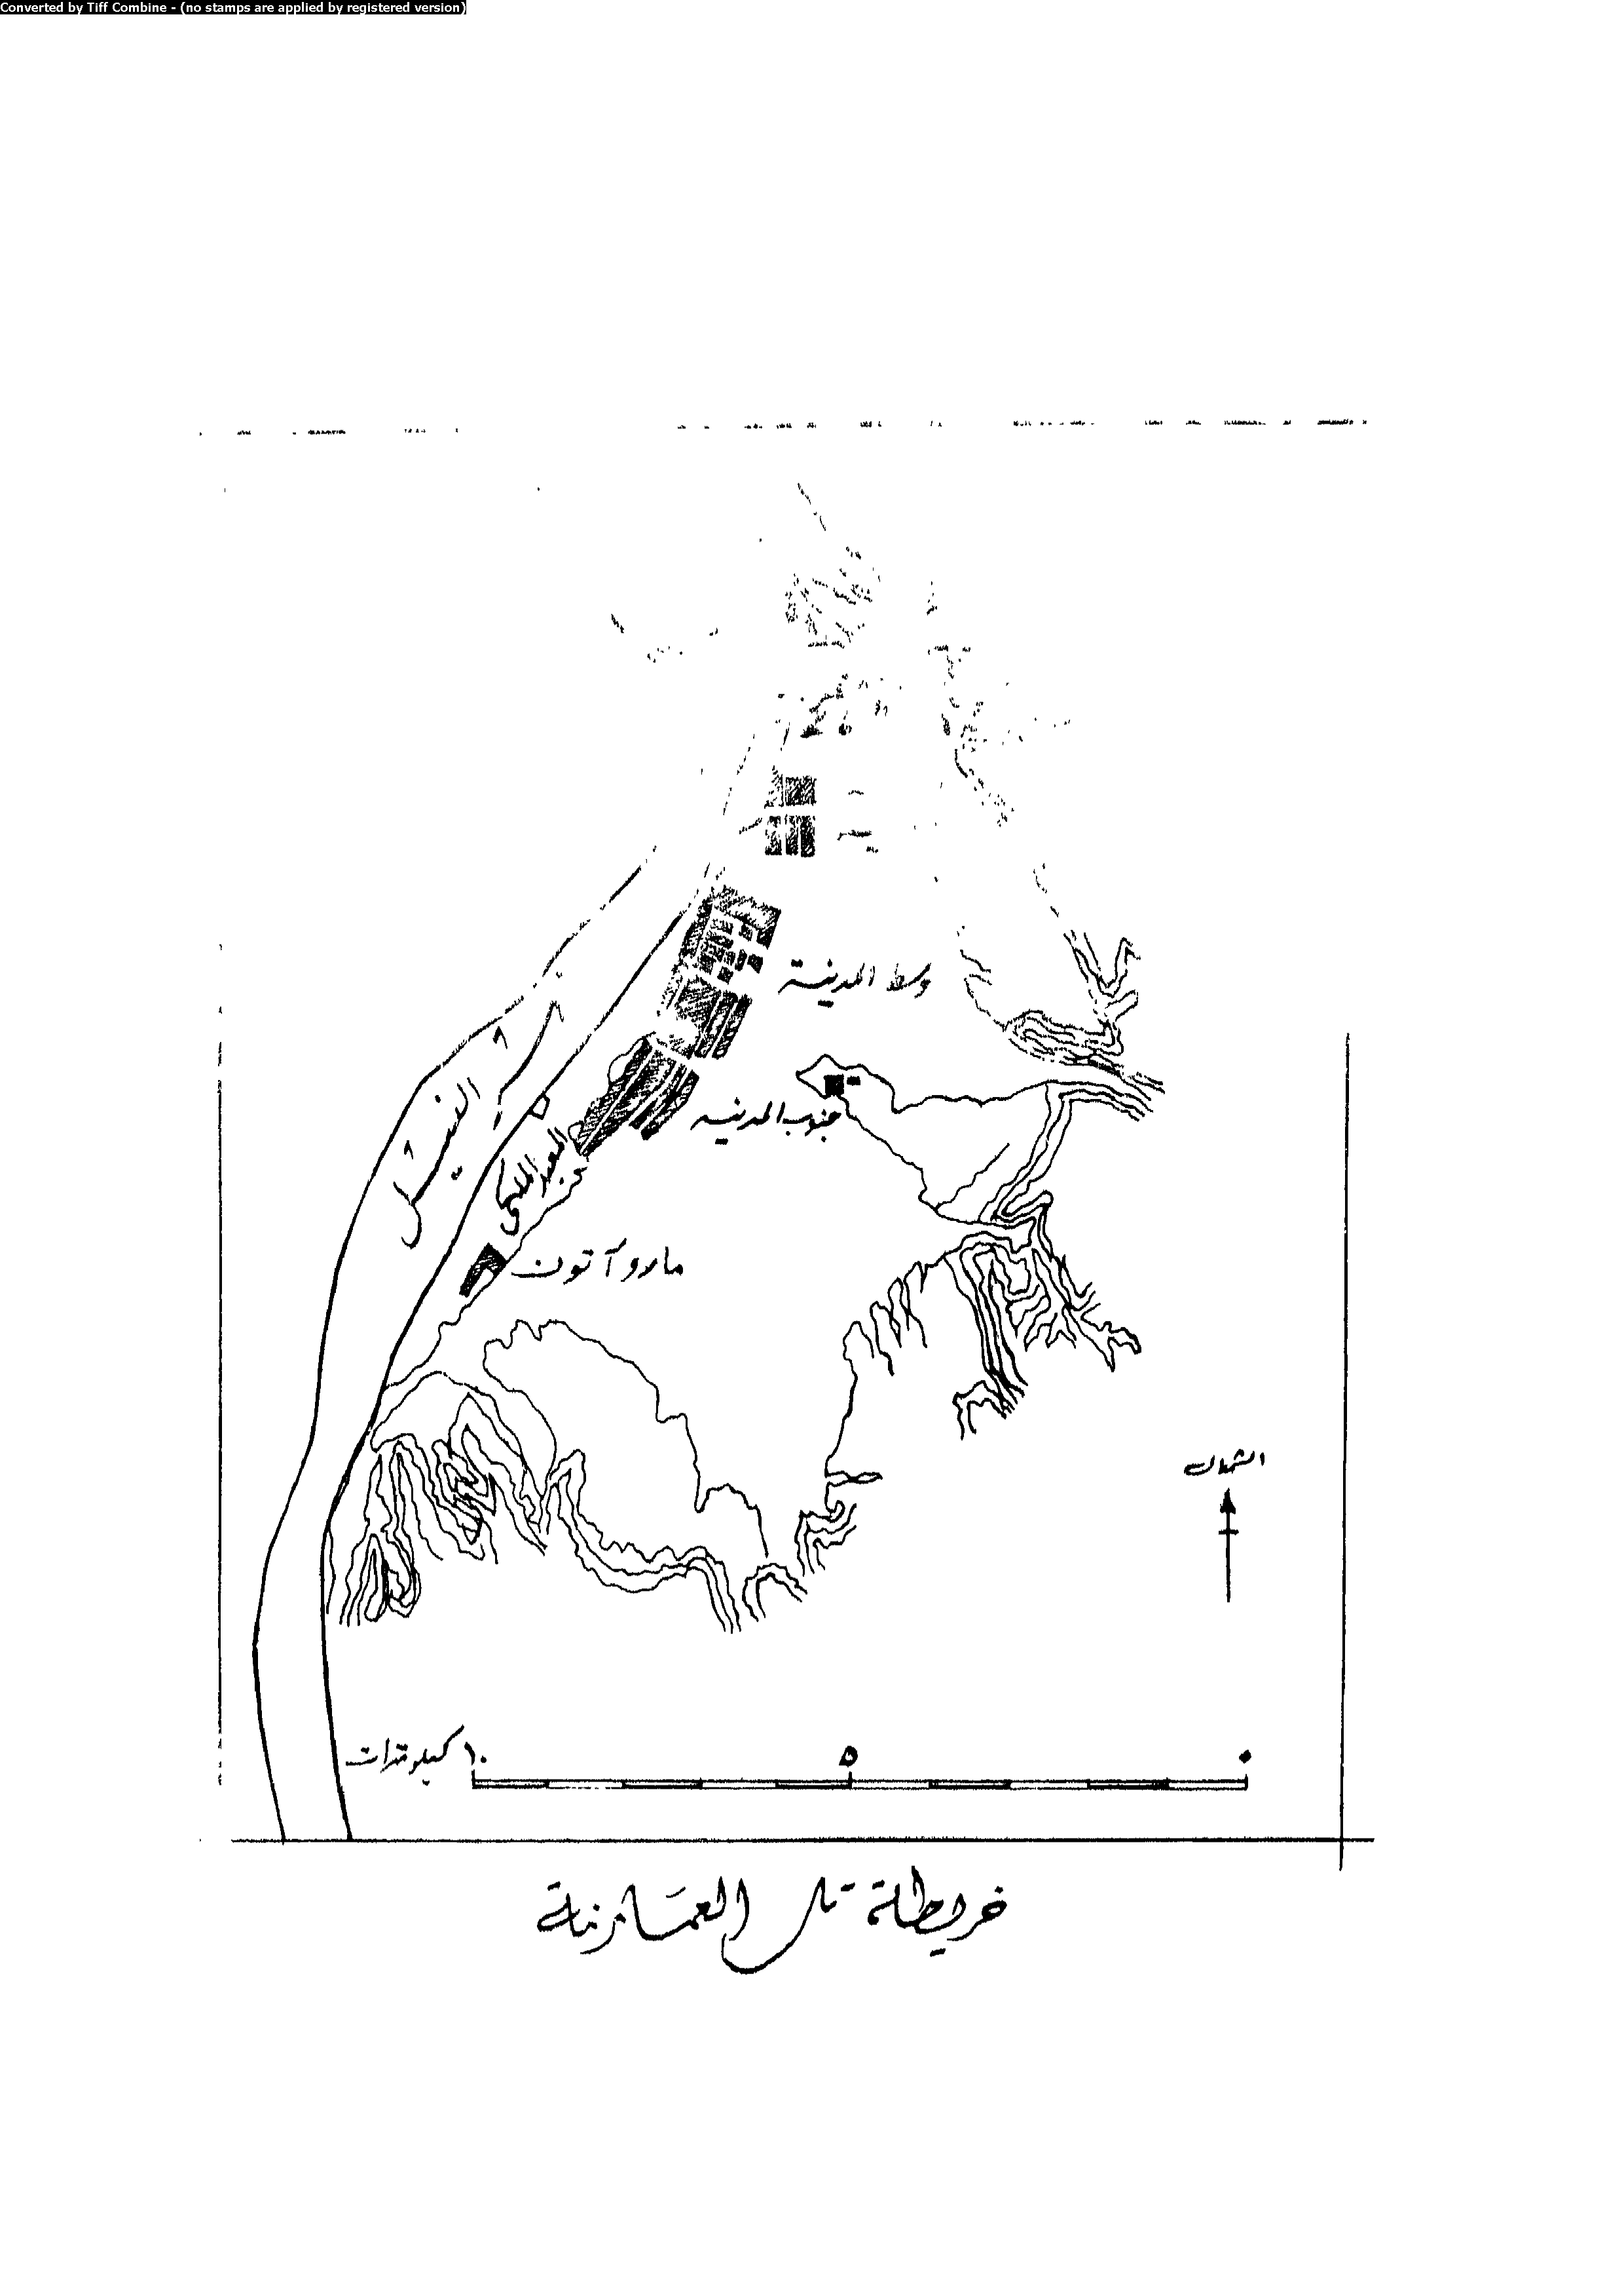 Converted by Tiff Combine - (no stamps are applied by registered version)
وسط المدينة
جنوب المدينه
النيل
المعبد الملكى
مارو آتون
الشمال
١٠ كيلو مترات
٥
٠
خريطة تل العمارنة